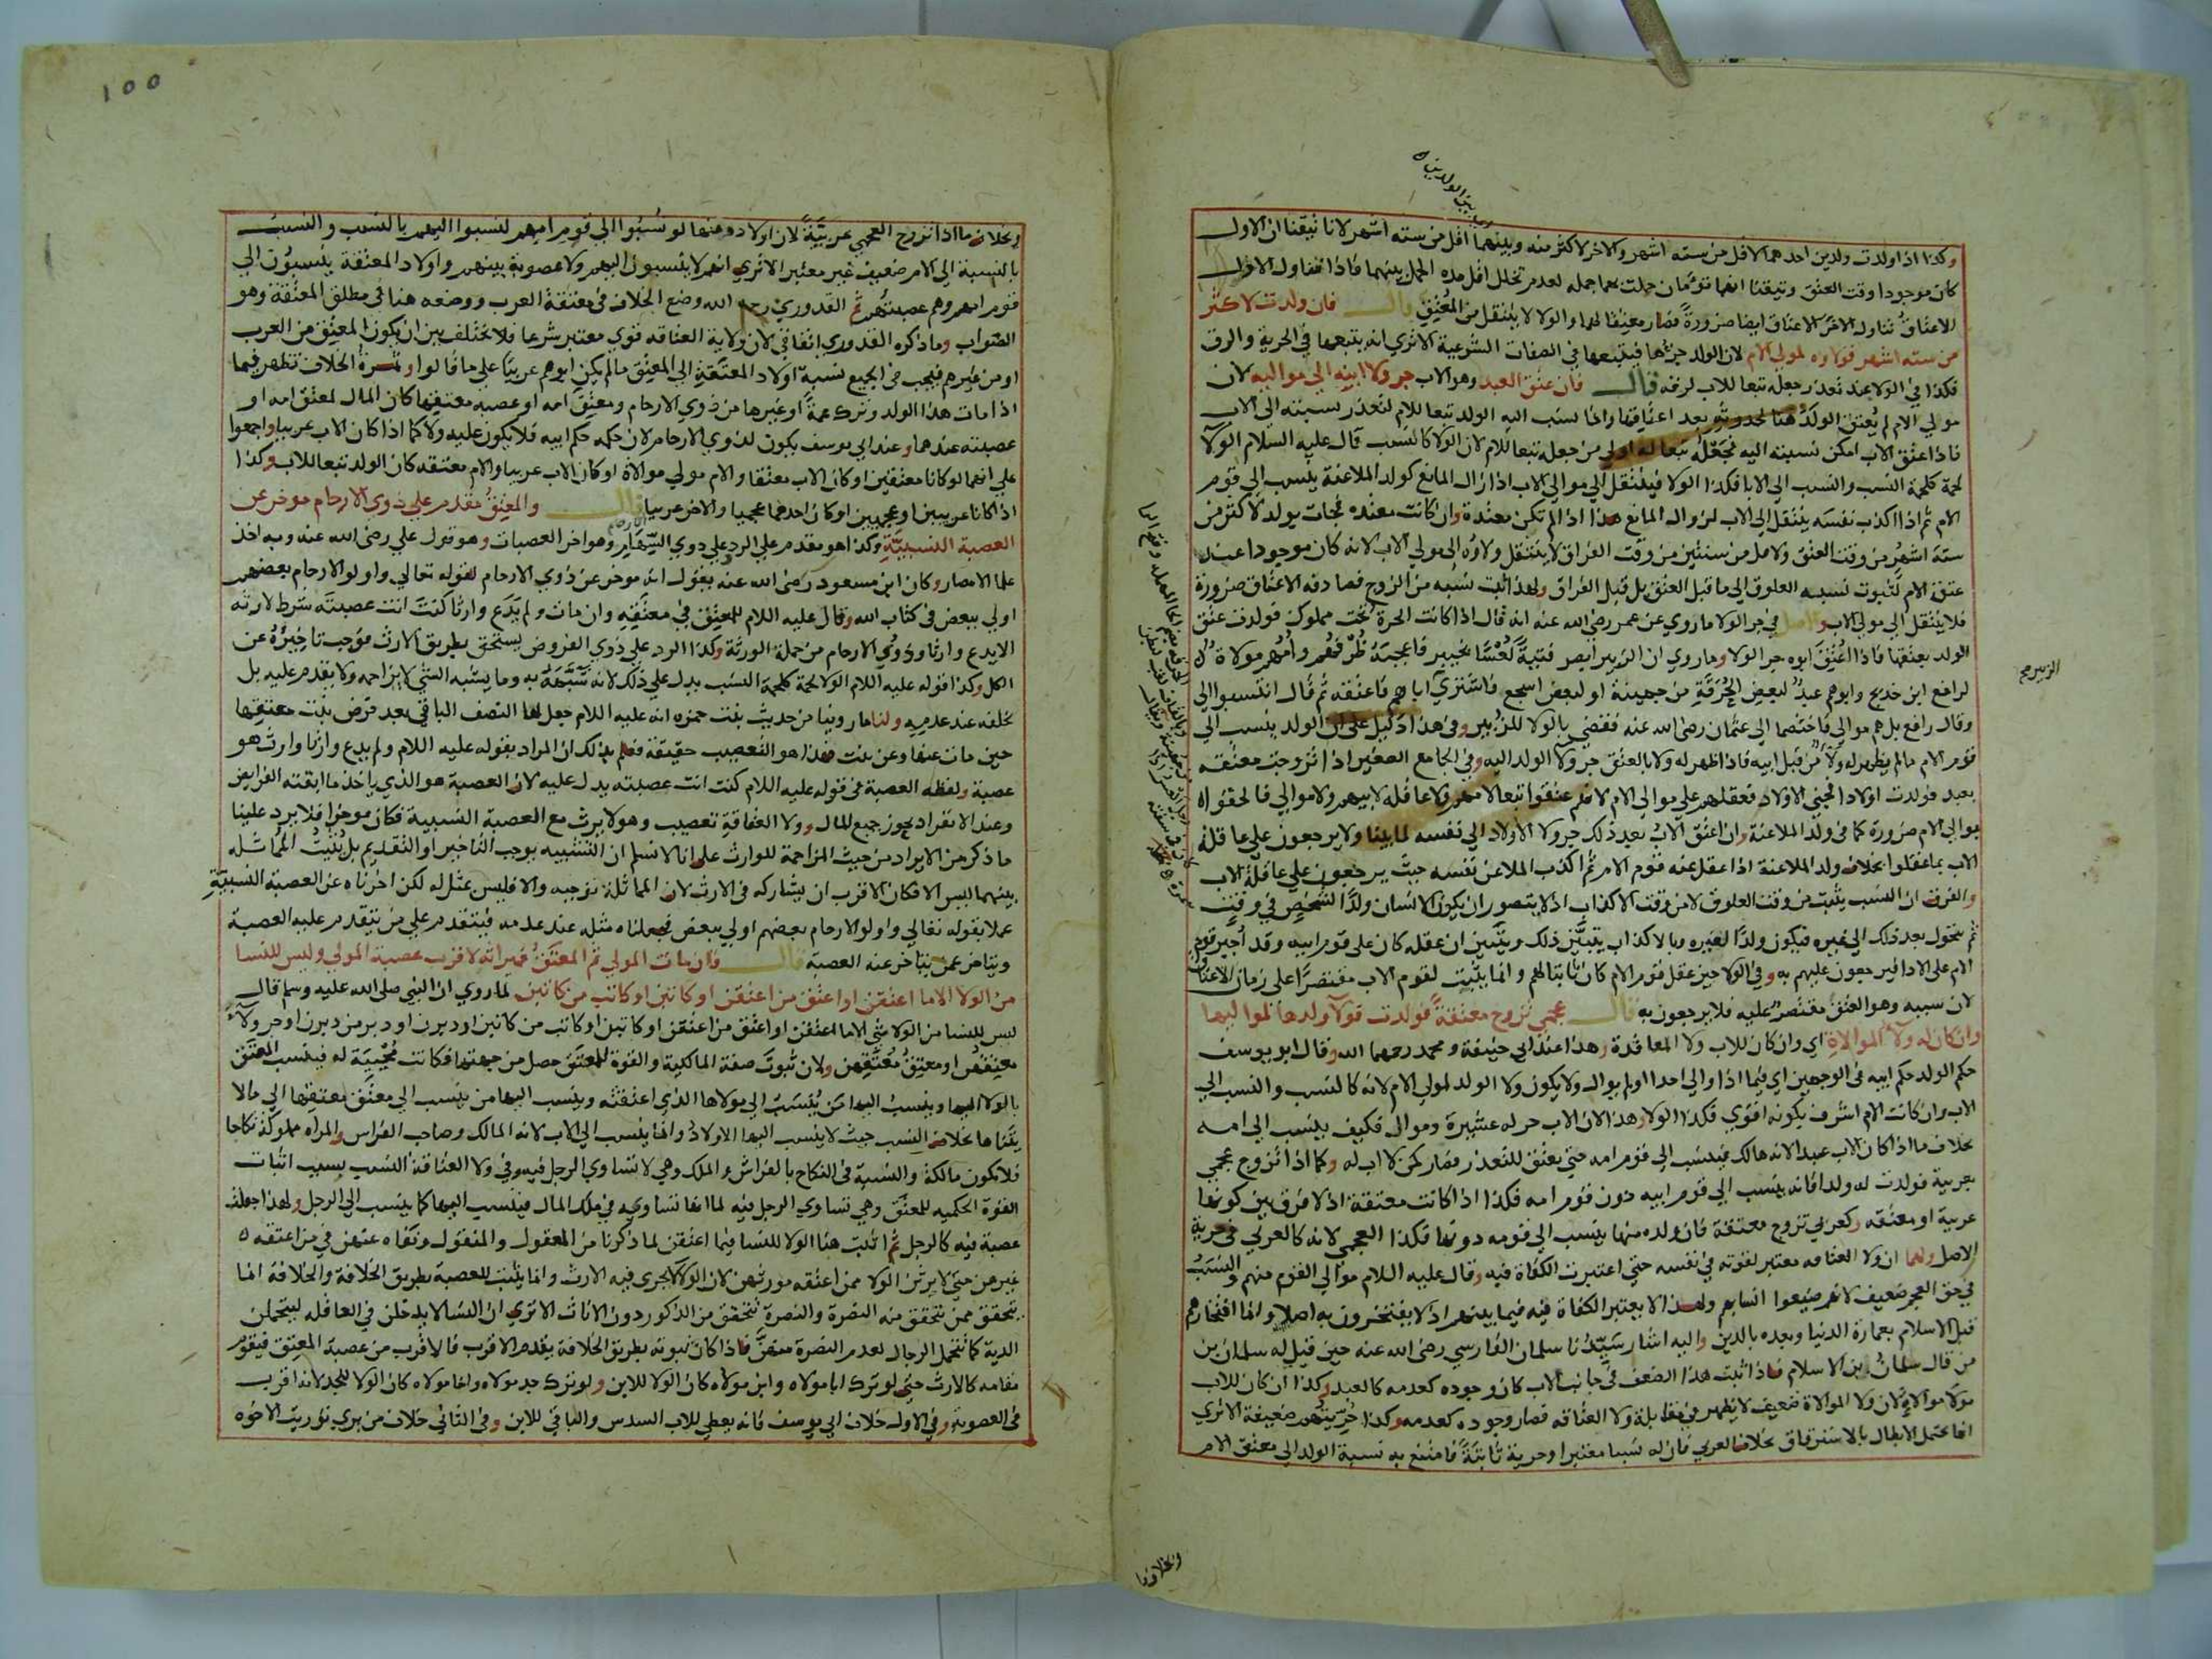 وكذا اذا ولدت ولدين احدهما لاقل من سته اشهر والاخر لاكثر منه وبينهما اقل من سته اشهر لانا تيقنا ان الاول
كان موجودا وقت العتق وتيقنا انهما توءمان حملت بهما جمله لعدم تخلل اقل مده الحمل بينهما فاذا تناول الاول
الاعتاق تناول الاخر الاعتاق ايضا ضرورة فصار معتقا لهما والولا لا ينتقل من المعتق قال فان ولدت لاكثر
من سته اشهر فولاوه لمولي الام لان الولد جزءها فيتبعها في الصفات الشرعية الا تري انه يتبعها في الحرية والرق
فكذا في الولا عند تعذر جعله تبعا للاب لرقه قال فان عتق العبد وهو الاب جر ولا ابنه الي مواليه لان
مولي الام لم يعتق الولد هنا لحدوثه بعد اعتاقها وانما نسب اليه الولد تبعا للام لتعذر نسبته الي الاب
فاذا عتق الاب امكن نسبته اليه فجعله تبعا له اولي من جعله تبعا للام لان الولا كالنسب قال عليه السلام الولا
لحمة كلحمة النسب والنسب الي الابا فكذا الولا فينتقل الي موالي الاب اذا زال المانع كولد الملاعنة ينسب الي قوم
الام ثم اذا اكذب نفسه ينتقل الي الاب لزوال المانع هذا اذا لم تكن معتدة وان كانت معتده فجات بولد لاكثر من
ستة اشهر من وقت العتق ولاقل من سنتين من وقت الفراق لا ينتقل ولاؤه الي مولي الاب لانه كان موجودا عند
عتق الام لثبوت نسبه العلوق الي ما قبل العتق بل قبل الفراق ولهذا ثبت نسبه من الزوج فصادفه الاعتاق ضرورة
فلا ينتقل الي مولي الاب والاصل في جر الولا ما روي عن عمر رضي الله عنه انه قال اذا كانت الحرة تحت مملوك فولدت عتق
الولد بعتقها فاذا اعتق ابوه جر الولا وما روي ان الزبير ابصر فتية لعسا بخيبر فاعجبه ظرفهم وامهم مولاة
لرافع ابن خديج وابوهم عبد لبعض الحرقة من جهينة او لبعض اشجع فاشتري اباهم فاعتقه ثم قال انتسبوا الي
وقال رافع بل هم موالي فاختصما الي عثمان رضي الله عنه فقضي بالولا للزبير وفي هذا دليل علي ان الولد ينسب الي
قوم الام ما لم يظهر له ولا من قبل ابيه فاذا ظهر له ولا بالعتق جر ولا الولد اليه وفي الجامع الصغير اذا تزوجت معتقه
بعبد فولدت اولادا فجني الاولاد فعقلهم علي موالي الام لانهم عتقوا تبعا لامهم ولا عاقلة لابيهم ولا موالي فالحقوا
بموالي الام ضرورة كما في ولد الملاعنة وان اعتق الاب بعد ذلك جر ولا الاولاد الي نفسه لما بينا ولا يرجعون علي عاقلة
الاب بما عقلوا بخلاف ولد الملاعنة اذا عقل عنه قوم الام ثم اكذب الملاعن نفسه حيث يرجعون علي عاقلة الاب
والفرق ان النسب يثبت من وقت العلوق لا من وقت الاكذاب اذ لا يتصور ان يكون الانسان ولد الشخص في وقت
ثم يتحول بعد ذلك الي غيره فيكون ولدا لغيره وبالاكذاب يتبين ذلك ويتبين ان عقله كان علي قوم ابيه وقد اجبر قوم
الام علي الادا فيرجعون عليهم به وفي الولا حين عقل قوم الام كان ثابتا لهم وانما يثبت لقوم الاب مقتصرا علي زمان الاعتاق
لان سببه وهو العتق مقتصر عليه فلا يرجعون به قال عجمي تزوج معتقة فولدت فولا ولدها لمواليها
وان كان له ولا الموالاة اي وان كان للاب ولا المعاقدة وهذا عند ابي حنيفة ومحمد رحمهما الله وقال ابو يوسف
حكم الولد حكم ابيه في الوجهين اي فيما اذا والي احدا اولم يوال ولا يكون ولا الولد لمولي الام لانه كالنسب والنسب الي
الاب وان كانت الام اشرف يكونه اقوي فكذا الولا وهذا لان الاب حر له عشيرة وموال فكيف ينسب الي امه
بخلاف ما اذا كان الاب عبدا لانه هالك فينسب الي قوم امه حتي يعتق للتعذر فصار كمن لا اب له وكما اذا تزوج عجمي
بعربية فولدت له ولدا فانه ينسب الي قوم ابيه دون قوم امه فكذا اذا كانت معتقة اذ لا فرق بين كونها
عربية او معتقه وكعربي تزوج معتقة فان ولده منها ينسب الي قومه دونها فكذا العجمي لانه كالعربي في حرية
الاصل ولهما ان ولا العتاقه معتبر لقوته في نفسه حتي اعتبرت الكفاة فيه وقال عليه السلام موالي القوم منهم والنسب
في حق العجم ضعيف لانهم ضيعوا انسابهم ولهذا لا يعتبر الكفاة فيه فيما بينهم اذ لا يفتخرون به اصلا وانما افتخارهم
قبل الاسلام بعمارة الدنيا وبعده بالدين واليه اشار سيدنا سلمان الفارسي رضي الله عنه حين قيل له سلمان بن
من قال سلمان بن الاسلام فاذا ثبت هذا الضعف في جانب الاب كان وجوده كعدمه كالعبد وكذا ان كان للاب
مولا موالاة لان ولا الموالاة ضعيف لا يظهر في مقابلة ولا العتاقه فصار وجوده كعدمه وكذا حريتهم ضعيفة الا تري
انها تحتمل الابطال بالاسترقاق بخلاف العربي فان له نسبا معتبرا وحرية ثابتة فامتنع به نسبة الولد الي معتق الام
الزبير
وبخلاف ما
١٥٥
وبخلاف ما اذا تزوج العجمي عربية لان اولاده منها لو نسبوا الي قوم امهم لنسبوا اليهم بالنسب والنسب
بالنسبة الي الام ضعيف غير معتبر الا تري انهم لا ينسبون اليهم ولا عصوبة بينهم واولاد المعتقة ينسبون الي
قوم امهم وهم عصبتهم ثم القدوري رحمه الله وضع الخلاف في معتقة العرب ووضعه هنا في مطلق المعتقة وهو
الصواب وما ذكره القدوري اتفاقي لان ولاية العتاقه قوي معتبر شرعا فلا تختلف بين ان يكون المعتق من العرب
او من غيرهم فيجب في الجميع نسبة اولاد المعتقة الي المعتق ما لم يكن ابوهم عربيا علي ما قالوا وثمرة الخلاف تظهر فيما
اذا مات هذا الولد وترك عمة او غيرها من ذوي الارحام ومعتق امه او عصبه معتقها كان المال لمعتق امه او
عصبته عندهما وعند ابي يوسف يكون لذوي الارحام لان حكمه حكم ابيه فلا يكون عليه ولا كما اذا كان الاب عربيا واجمعوا
علي انهما لو كانا معتقين او كان الاب معتقا والام مولي موالاة او كان الاب عربيا والام معتقه كان الولد تبعا للاب وكذا
اذا كانا عربيين او عجميين او كان احدهما عجميا والاخر عربيا قال والمعتق مقدم علي ذوي الارحام موخر عن
العصبة النسبية وكذا هو مقدم علي الرد علي ذوي السهام وهو اخر العصبات وهو قول علي رضي الله عنه وبه اخذ
علما الامصار وكان ابن مسعود رضي الله عنه يقول انه موخر عن ذوي الارحام لقوله تعالي واولوا الارحام بعضهم
اولي ببعض في كتاب الله وقال عليه اللام للمعتق في معتقه وان مات ولم يدع وارثا كنت انت عصبته شرط لارثه
الا يدع وارثا وذوي الارحام من جملة الورثة وكذا الرد علي ذوي الفروض يستحق بطريق الارث
الكل وكذا قوله عليه اللام الولا لحمة كلحمة النسب يدل علي ذلك لانه شبهه به وما يشبه الشي لا يزاحمه ولا يقدم عليه بل
يخلفه عند عدمه ولنا ما روينا من حديث بنت حمزه انه عليه اللام جعل لها النصف الباقي بعد فرض بنت معتقها
حين مات عنها وعن بنت فهذا هو التعصيب حقيقة فعلم بذلك ان المراد بقوله عليه اللام ولم يدع وارثا وارث هو
عصبة ولفظه العصبة في قوله عليه اللام كنت انت عصبته يدل عليه لان العصبة هو الذي ياخذ ما ابقته الفرايض
وعند الانفراد يحوز جميع المال وولا العتاقة تعصيب وهو لا يرث مع العصبة النسبية فكان موخرا فلا يرد علينا
ما ذكر من الايراد من حيث المزاحمة للوارث علي انا لا نسلم ان التشبيه يوجب التاخير او التقديم بل يثبت المماثله
بينهما ليس الا فكان الاقرب ان يشاركه في الارث لان المماثلة توجبه والا فليس بمثل له لكن اخرناه عن العصبة النسبية
عملا بقوله تعالي واولوا الارحام بعضهم اولي ببعض فجعلناه مثله عند عدمه فيتقدم علي من يتقدم عليه العصبة
ويتاخر عمن يتاخر عنه العصبة قال فان مات المولي ثم المعتق فميراثه لاقرب عصبة المولي وليس للنسا
من الولا الا ما اعتقن او اعتق من اعتقن او كاتبن او كاتب من كاتبن لما روي ان النبي صلي الله عليه وسلم قال
ليس للنسا من الولا شي الا ما اعتقن او اعتق من اعتقن او كاتبن او كاتب من كاتبن او دبرن او دبر من دبرن او جر ولا
معتقهن او معتق معتقهن ولان ثبوت صفة المالكية والقوة للمعتق حصل من جهتها فكانت محيية له فينسب المعتق
بالولا اليها وينسب اليها من ينسب الي مولاها الذي اعتقته وينسب اليها من ينسب الي معتق معتقها الي ما لا
يتناها بخلاف النسب حيث لا ينسب اليها الاولاد وانما ينسب الي الاب لانه المالك وصاحب الفراش والمراه مملوكة نكاحا
فلا تكون مالكة والنسبة في النكاح بالفراش والملك وهي لا تساوي الرجل فيه وفي ولا العتاقة النسب بسبب اثبات
القوة الحكميه للمعتق وهي تساوي الرجل فيه لما انها تساويه في ملك المال فينسب اليها كما ينسب الي الرجل ولهذا جعلت
عصبة فيه كالرجل ثم اثبت هنا الولا للنسا فيما اعتقن لما ذكرنا من المعقول والمنقول ونفاه عنهن في من اعتقه
غيرهن حتي لا يرثن الولا ممن اعتقه مورثهن لان الولا لا يجري فيه الارث وانما يثبت للعصبة بطريق الخلافة والخلافة انما
يتحقق ممن تتحقق منه النصرة والنصرة تتحقق من الذكور دون الاناث الا تري ان النسا لا يدخلن في العاقله ليتحملن
الدية كما تتحمل الرجال لعدم النصرة منهن فاذا كان ثبوته بطريق الخلافة يقدم الاقرب فالاقرب من عصبة المعتق فيقوم
مقامه كالارث حتي لو ترك ابا مولاه وابن مولاه كان الولا للابن ولو ترك جد مولاه واخا مولاه كان الولا للجد لانه اقرب
في العصوبة وفي الاول خلاف ابي يوسف فانه يعطي للاب السدس والباقي للابن وفي الثاني خلاف من يري توريث الاخوه